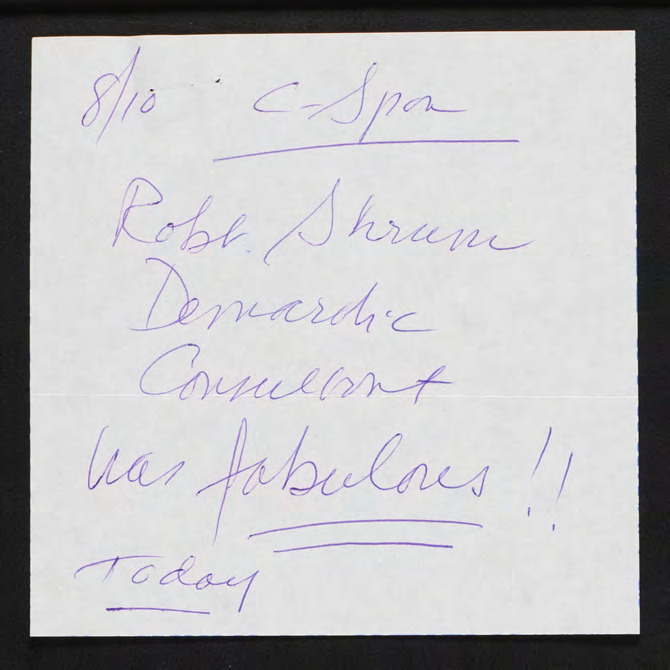 8/10 C-Span
Robt. Shrum
Democratic
Consultant
was fabulous!!
Today